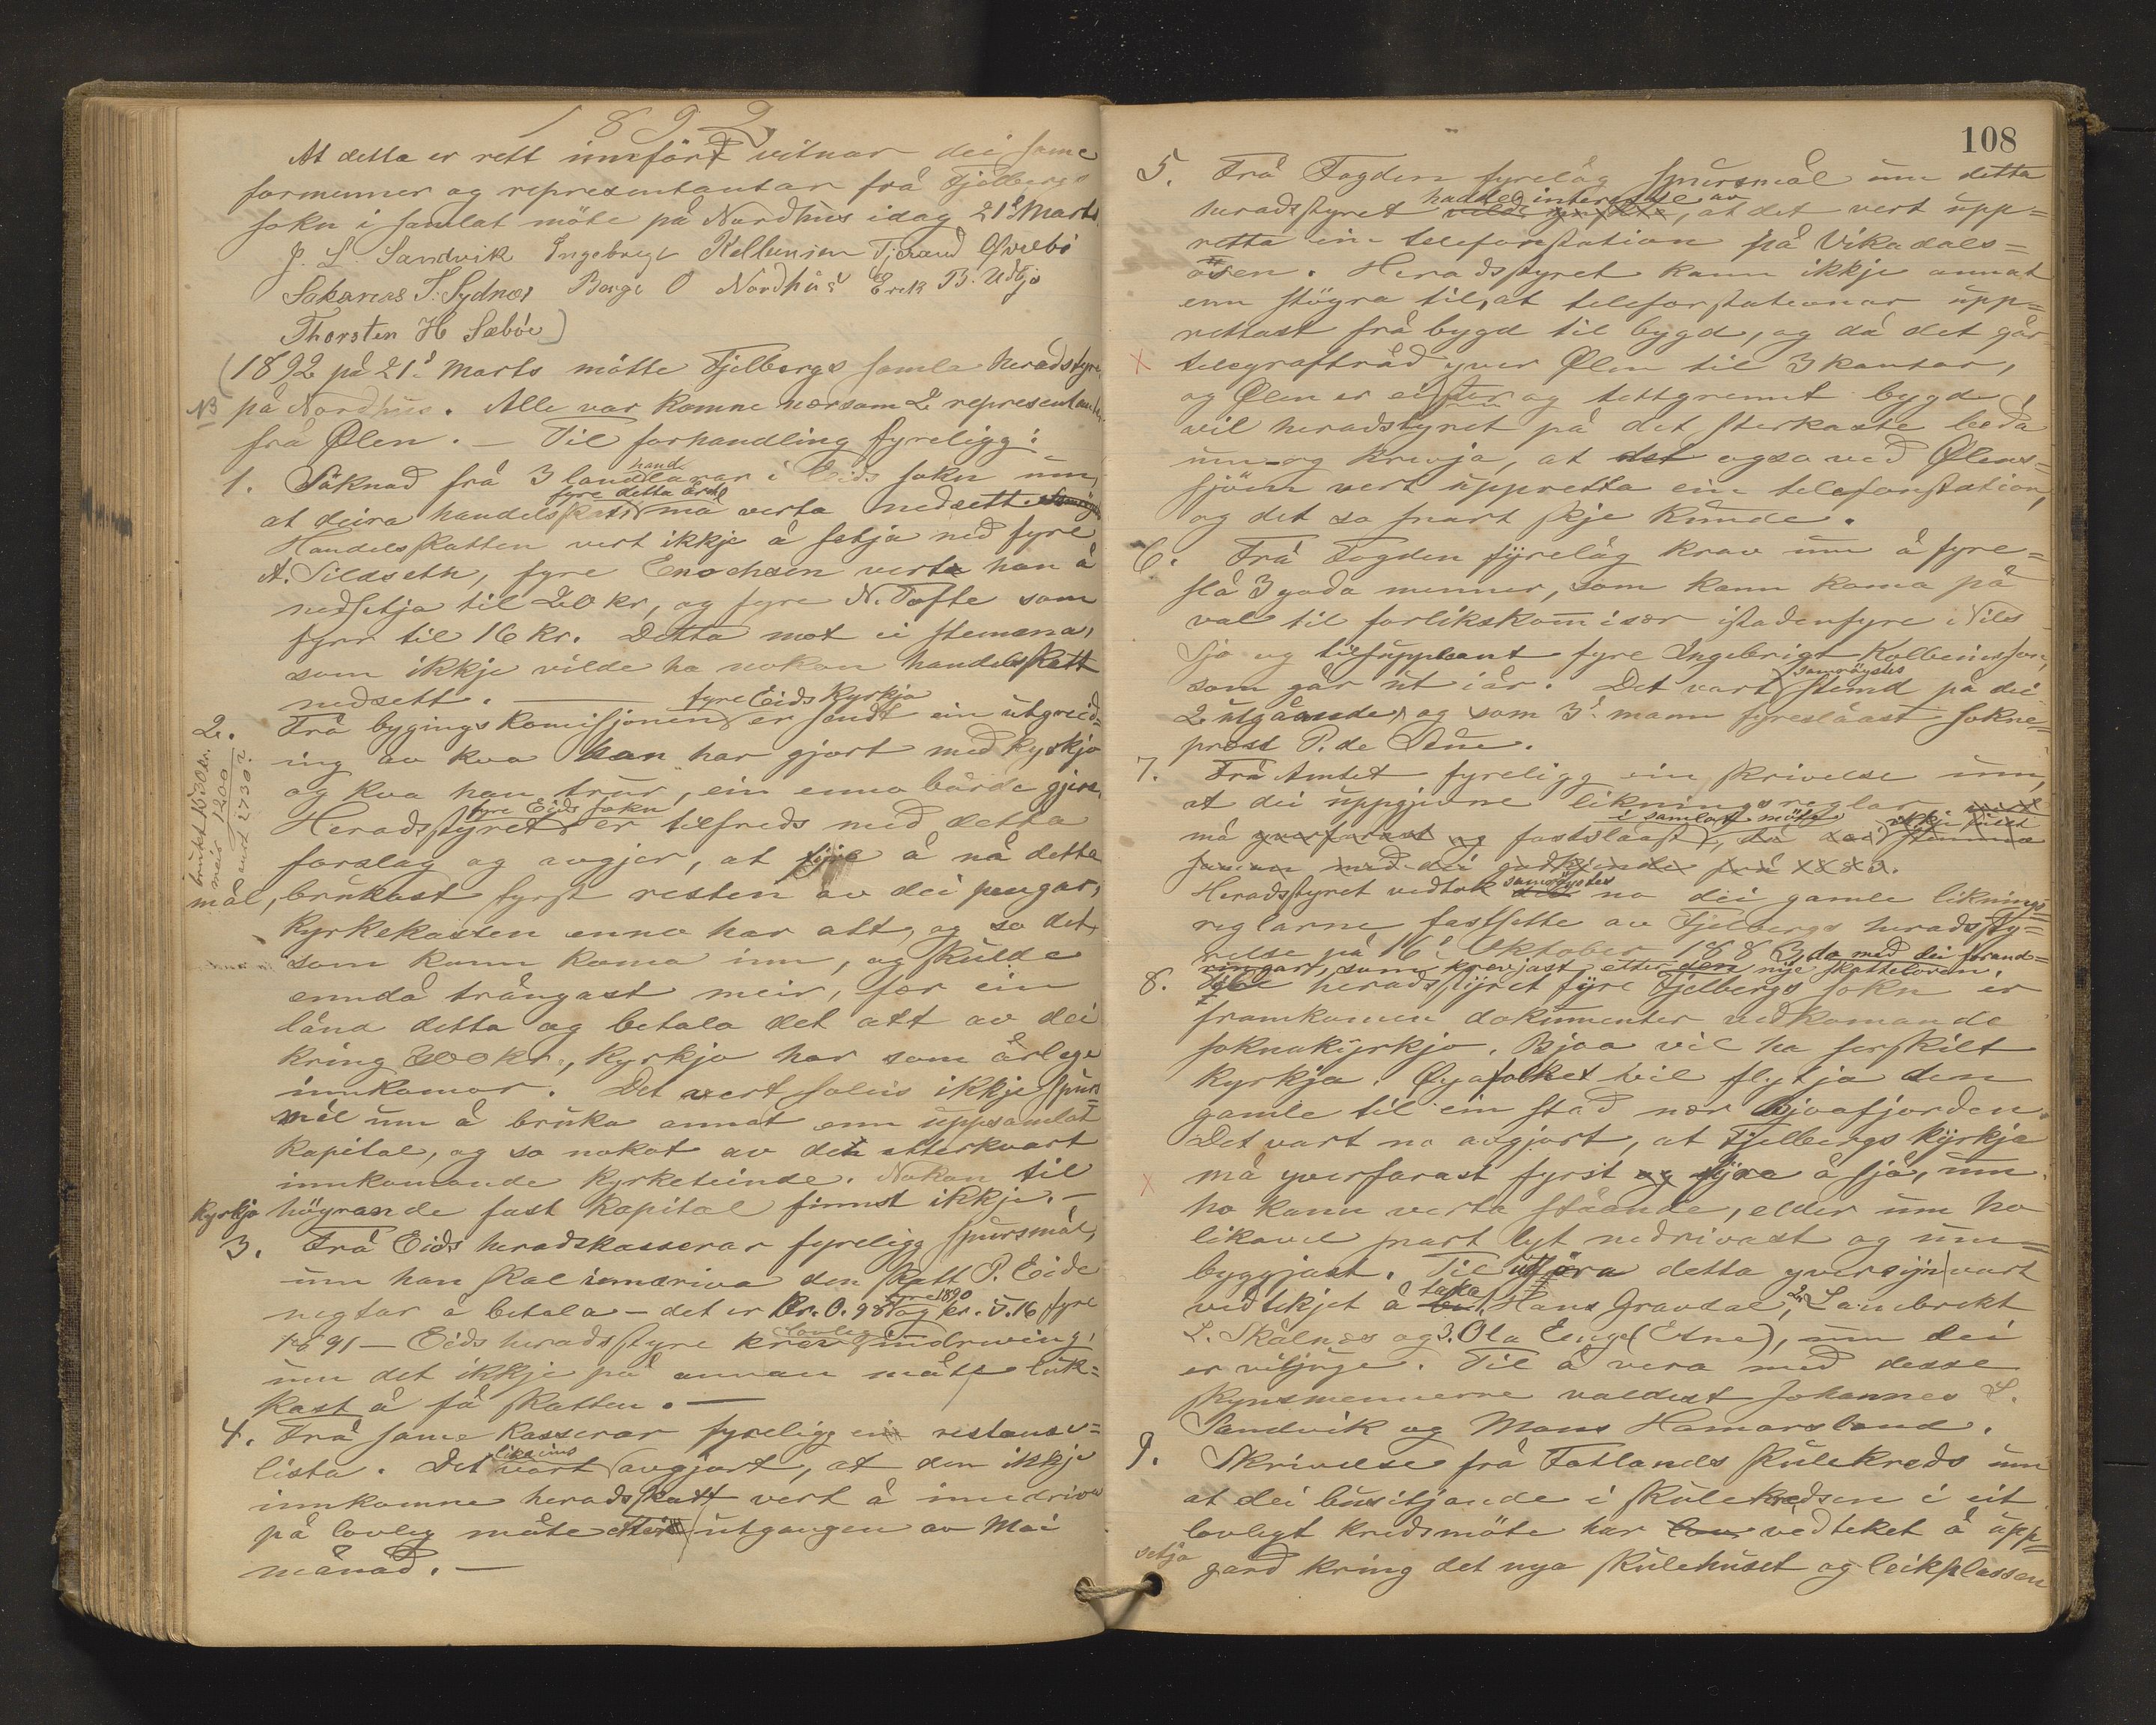 1892
At detta er rett innførd vitnar dei same
formenner og representantar frå Fjelbergs
sokn i samlat møte på Nordhus idag 21de Marts
J. L. Sandvik Ingebregt Tjerand Øvrebö
Sakarias T. Sydnes Børge O Nordhus Erik B. Udbjo
Thorsten H Sæbøe)
(1892 på 21de Marts møtte Fjelbergs samla heradstyre
NB på Nordhus. Alle var komne nærsom 2 representantar
frå Ølen. — Til forhandling fyreligg:
1. Söknad frå 3 landhandlarar i Eids sokn um,
at deira handelsskatt fyre detta året må verta nedsett
Handelsskatten vert ikkje å setja ned fyre
A. Sildseth, fyre Enochsen verta han å
nedsetja til 20 kr, og fyre N. Tofte som
fyrr til 16 kr. Detta mot ei stemma,
som ikkje vilde ha nokon handelsskatt
nedsett. —
2. Frå bygingskomisjonen fyre Eids kyrkja er sendt ein utgreid=
ing av kva han har gjort med kyrkja
og kva han trur, ein enno burde gjera.
Heradsstyret fyre Eids sokn er tilfreds med detta
forslag og avgjer, at fyre å nå detta
mål, brukast fyrst resten av dei pengar,
kyrkekassen enno har att, og so det
som kann koma inn, og skulde
enndå trångast meir, før ein
lånd detta og betala det att av dei
kring 200 kr., kyrkja har som årlege
innkomor. Det vert soleis ikkje spurs=
mål um å bruka annat enn uppsamlat
kapital, og so nokot av det etterkvart
innkomande kyrketeinde. Nokon til
kyrkja høyrande fast kapital finnst ikkje. —
brukt 1530 kr.
meir 1200
sud 2730?
3. Frå Eids heradskasserar fyreligg spursmål,
um han skal inndriva den skatt P. Eide
negtar å betala — det er Kr. 0.98 fyre 1890 og kr. 5.16 fyre
1891 — Eids heradsstyre krev lovleg inndriving,
um det ikkje på annan måte luk=
kast å få skatten. —
4. Frå same kasserar fyreligg ein restanse=
lista. Det vart likeins avgjort, at den ikkje
innkomne heradsskatt vert å inndriva
på lovleg måte etter utgangen av Mai
månad. —
108
5. Frå Fogden fyrelåg spursmål um detta
heradsstyret hadde interesse av, at det vert upp=
retta ein telefonstation på Vikadals=
øsen. Heradsstyret kann ikkje annat
enn støgra til, at telefonstationar upp=
rettast frå bygd til bygd, og då det går
telegraftråd yver Ølen til 3 kantar,
og Ølen er ei stor og tettgrennt bygd,
vil heradstyret på det sterkaste beda
um og krevja, at det ogso ved Ølens=
sjöen vert uppretta ein telefonstation,
og det so snart skje kunde.
6. Frå Fogden fyrelåg krav um å fyre=
slå 3 goda menner, som kann koma på
val til forlikskomisær istadenfyre Nils
Sjo og til suppleant fyre Ingebrigt Kolbeinsson,
som går ut iår. Det vart samröystes stemd på dei
2 utgåande, og som 3de mann fyreslåast sokne=
prest P. de Seue.
7. Frå Amtet fyreligg ein skrivelse um,
at dei uppgjevne likningsreglar
må yverfarast og fastslåast i samlat møte, då dei ikkje stemma
saman med dei godkjende frå 1883.
Heradsstyret vedtok samröystes no dei gamle liknings=
reglarne, fastsette av Fjelbergs heradssty=
relse på 16de Oktober 1883, da med dei forand=
ringar, som krevjast etter den nye skattelovan.
8. Til heradsstyret fyre Fjelbergs sokn er
framkomen dokumenter vedkomande
soknakyrkja. Bjoa vil ha serskilt
kyrkja. Øyafolket vil flytja den
gamle til ein stad nær Bjoafjorden.
Det vart no avgjort, at Fjelbergs kyrkja
må yverfarast fyrst og fyre å sjå, um
ho kann verta ståande, elder um ho
likavel snart lyt nedrivast og um=
byggjast. Til å utføra detta yversyn vart
vedtekjet å taka 1. Hans Gravdal, 2. Lambrekt
L. Skålnes og 3. Ola Enge (Etne), um dei
er viljuge. Til å vera med desse
skynsmennerne valdest Johannes L.
Sandvik og Mons Hamarsland.
9. Skrivelse frå Fatlands skulekreds um
at dei busitjande i skulekredsen i eit
lovlegt kredsmöte har vedteket å upp=
setja gard kring det nya skulehuset og leikplassen